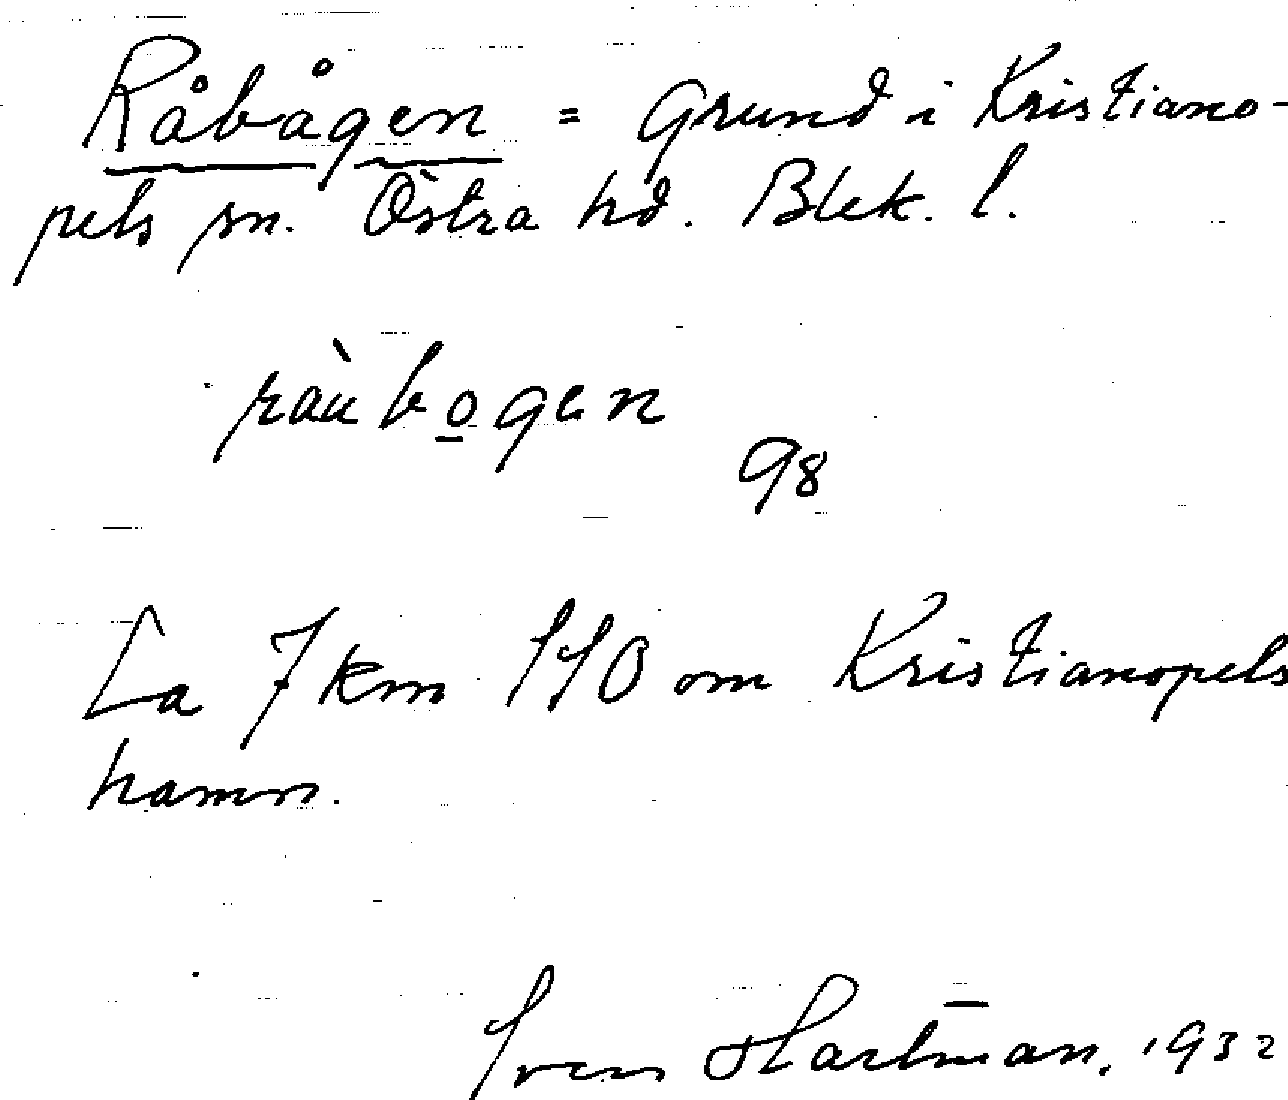 Råbågen = Grund i Kristiano-
pels sn. Östra hd. Blek. l.
ràubo̲gen
98
Ca 7 km SSO om Kristianopels
hamn.
Sven Hartman, 1932